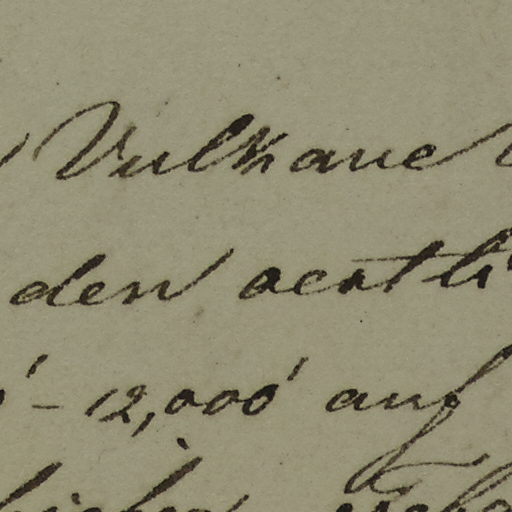 Vulkane
den oestli
' – 12,000' auf